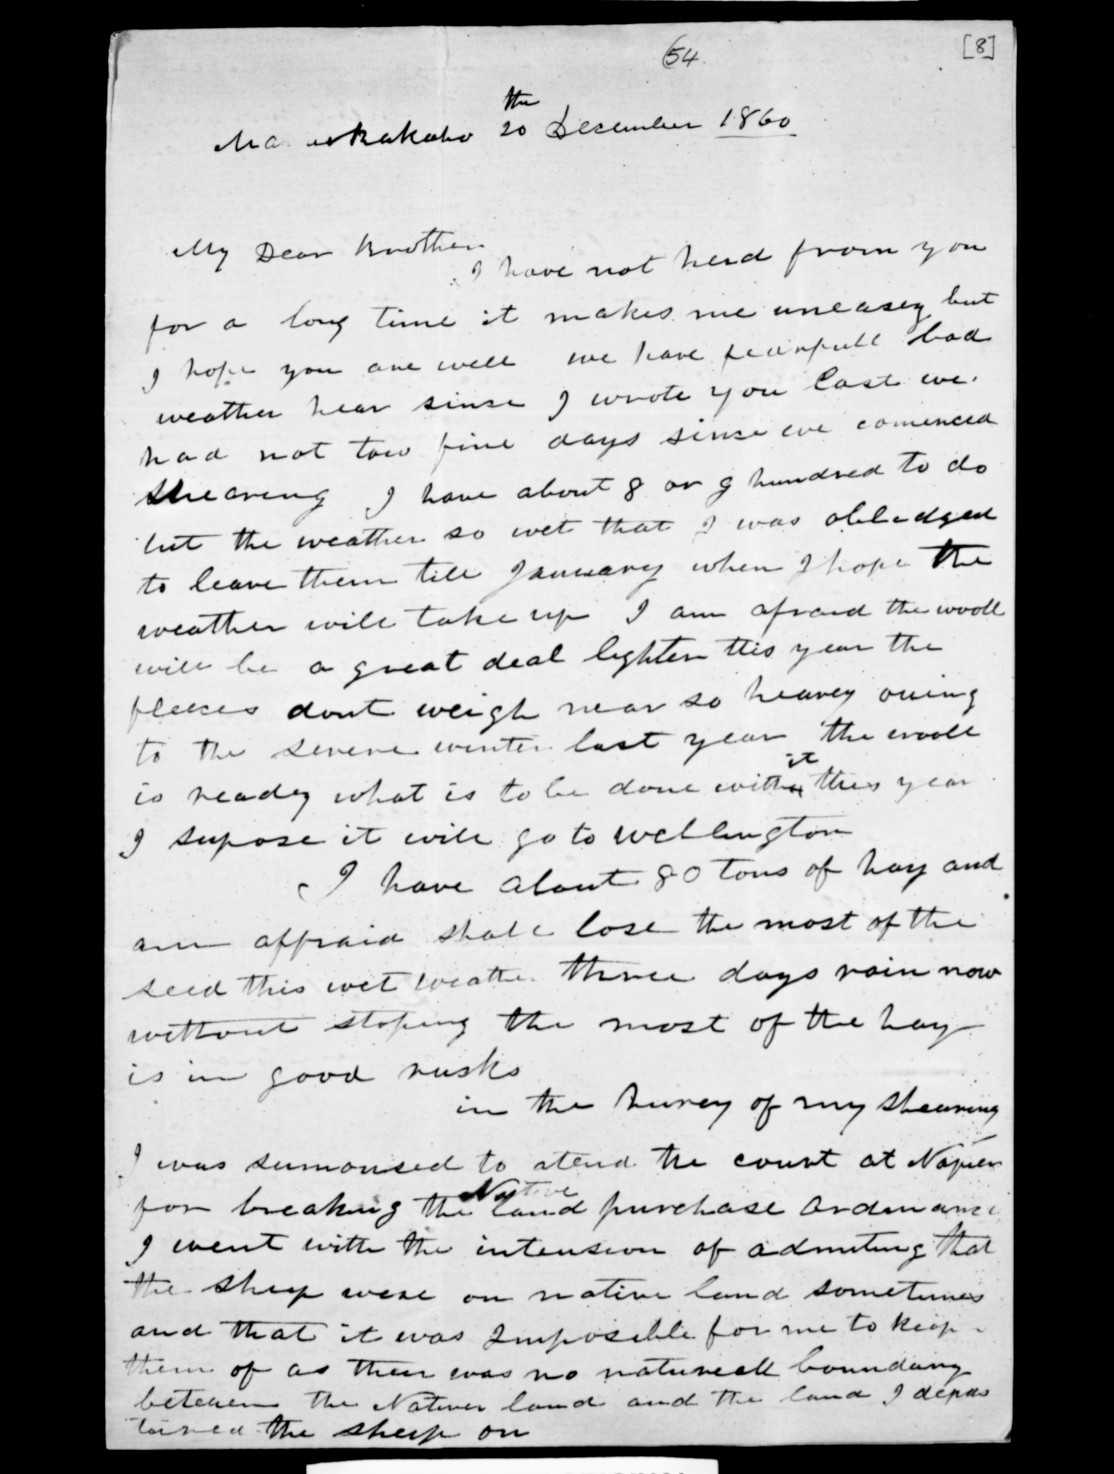 54
[8]
20 the December 1860
My Dear Brother
I have not herd from you
for a long time it makes me uneasey but
I hope you are well we have fearfull bad
weather hear sinse I wrote you last we
had not tow fine days sinse we comenced
shearing I have about 8 or 9 hundred to do
but the weather so wet that I was obledged
to leave them till January when I hope the
weather will take up I am afraid the wooll
will be a great deal lighter this year the
fleeces dont weigh near so heavey owing
to the severe winter last year the wooll
is ready what is to be done with it this year
I supose it will go to Wellington
I have about 80 tons of hay and
am affraid shall lose the most of the
seed this wet weather three days rain now
without stoping the most of the hay
is in good rusks
in the hurey of my shearing
I was sumonsed to atend the court at Napier
for breaking the Native land purchase ordinance
I went with the intension of admiting that
the sheep were on native land sometimes
and that it was Imposible for me to keep
them of as their was no natureall boundary
beteween the Natives land and the land I depas
tured the sheep on